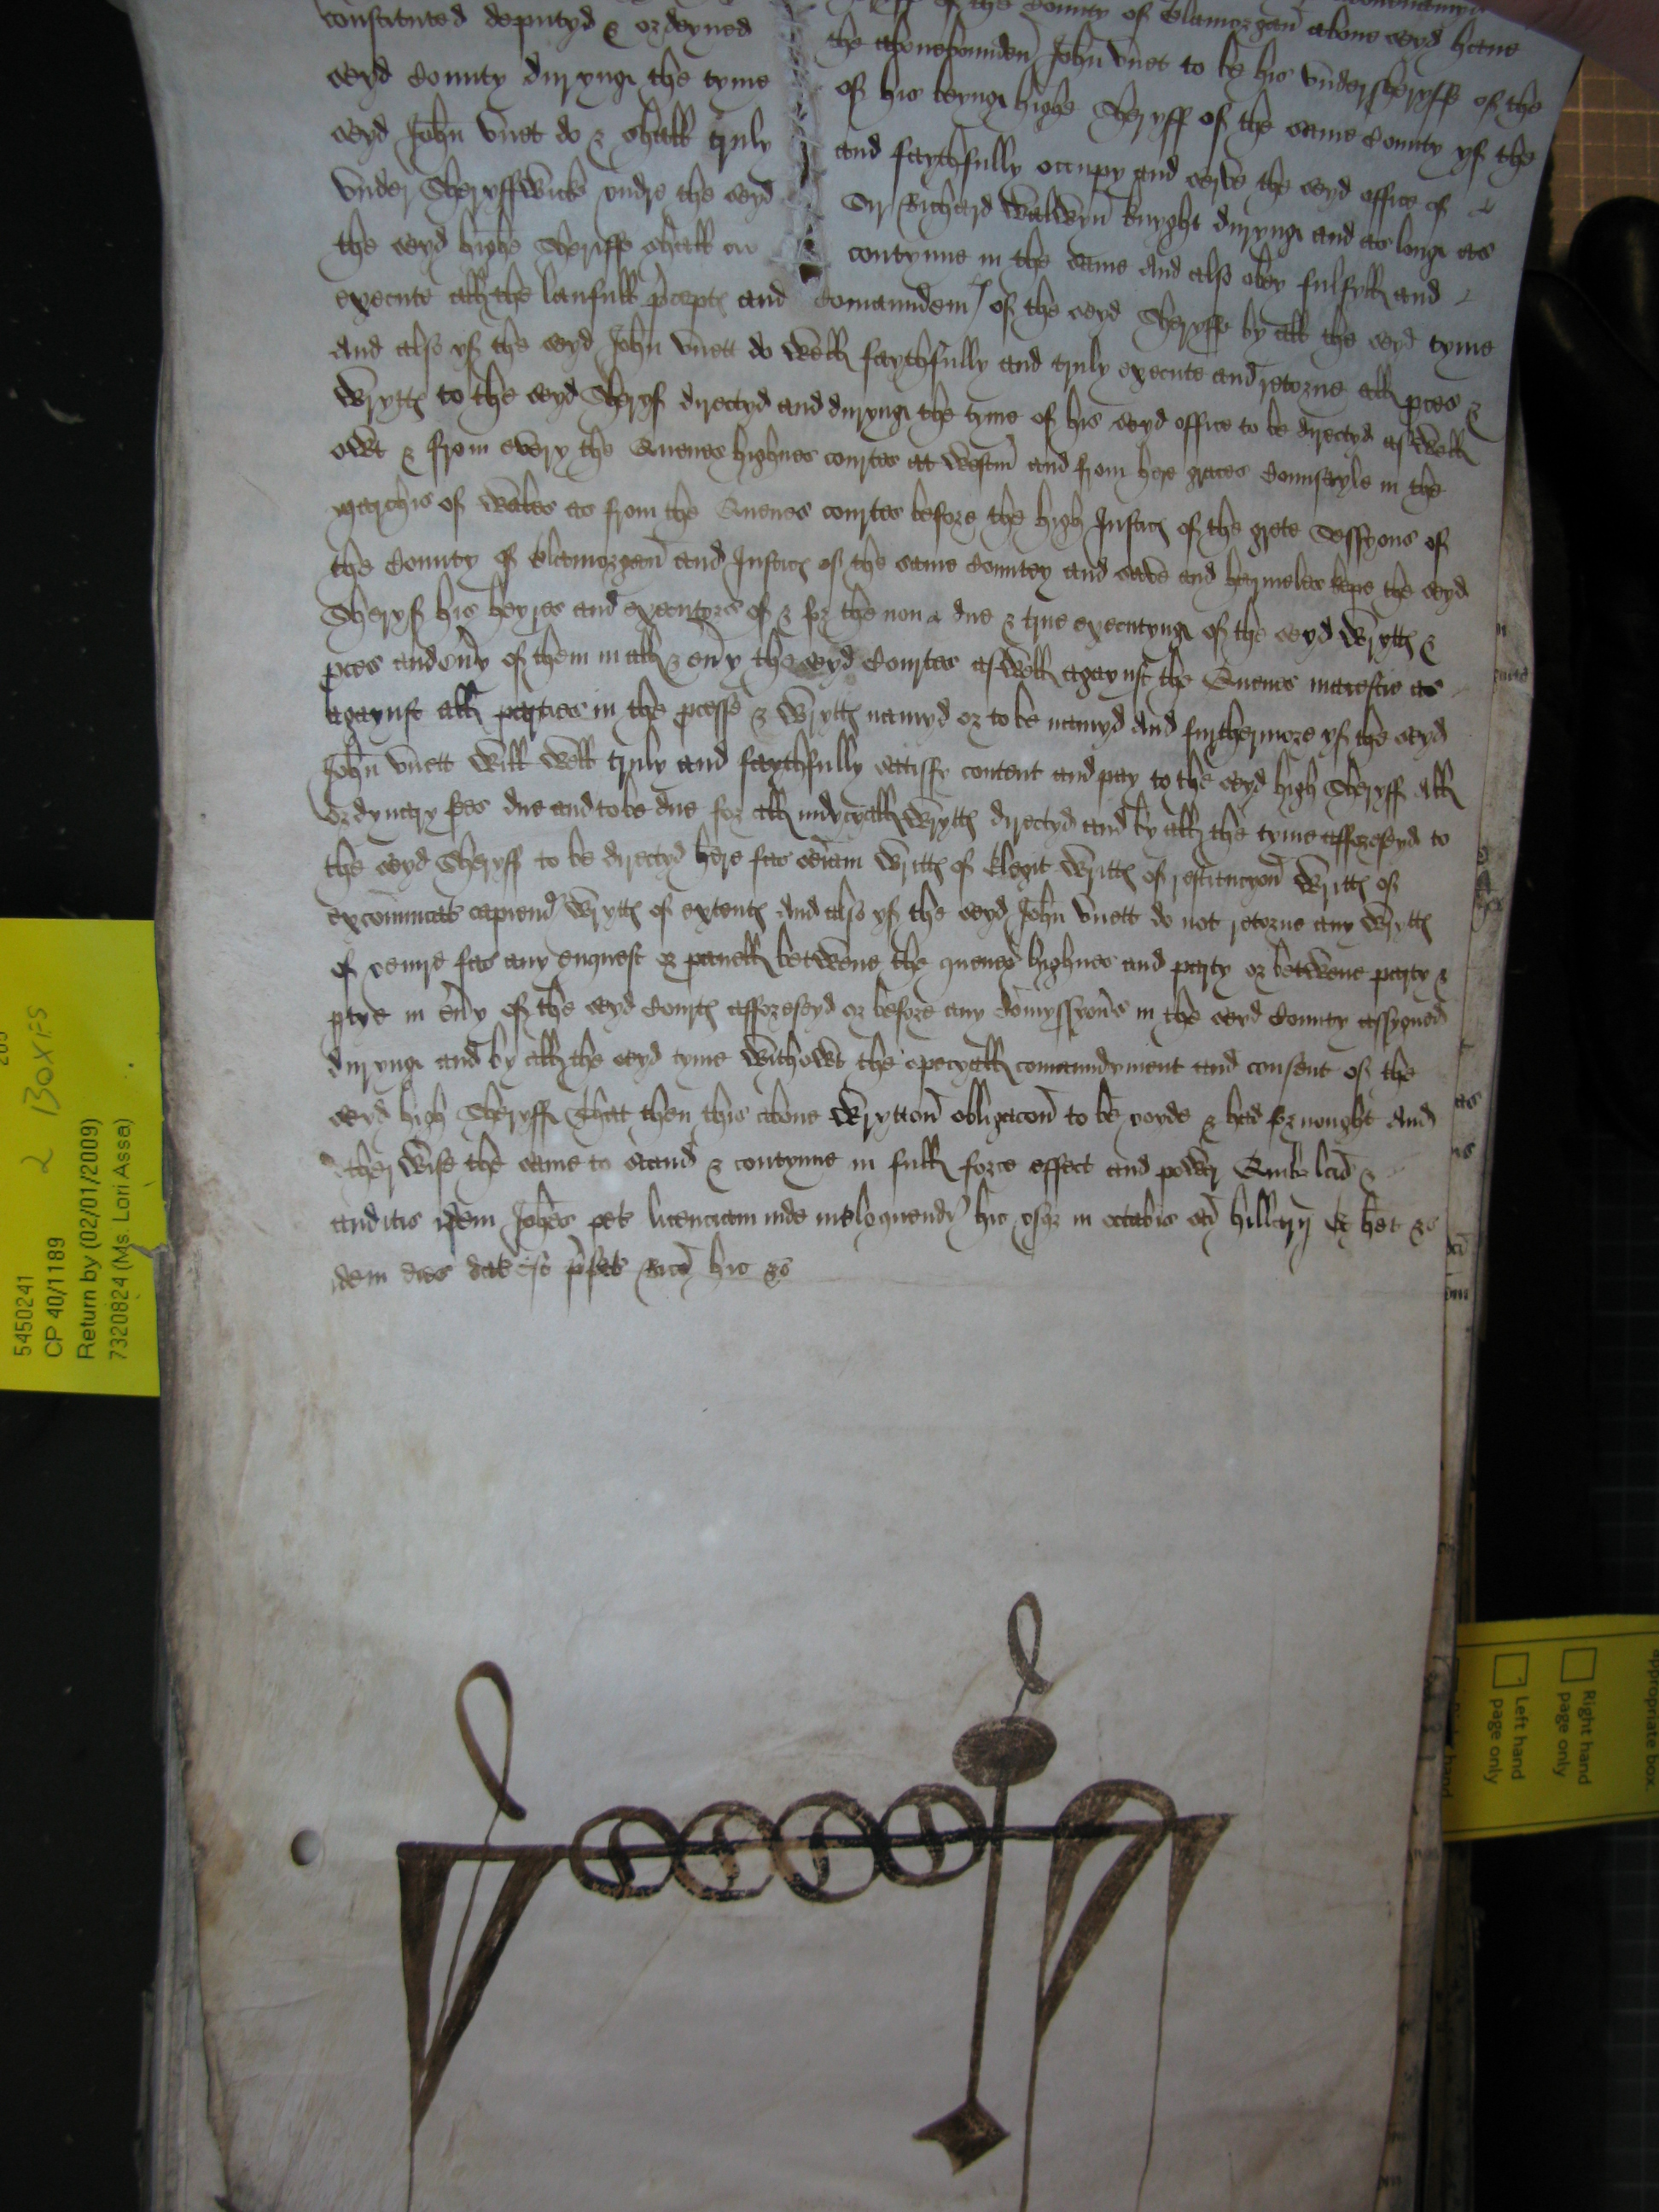 constituted deputyd & ordeyned the abovebounden John Vnet to be his vndersheryffe of the
seyd County duryng the tyme of his beyng highe Sheryff of the same County yf the
seyd John Vnet do & shall truly and faythfully occupy and serve the seyd office of
Vnder Sheryffwick vndre the seyd Sir Richard Walwyn knyght duryng and as long as
the seyd highe Sheriffe shall contynue in the same And also obey fulfyll and
execute all the laufull pcepts and Comaundem of the seyd Sheryffe by all the seyd tyme
And also yf the seyd John Vnett do well faythfully and truly execute and retorne all pces &
Wrytts to the seyd Sheryf directyd and duryng the tyme of his seyd office to be directyd aswell
owt & from every the Quenes highnes courtes at Westm and from here graces Counseyle in the
marchis of Wales as from the Quenes courtes before the high Justic of the grete Sessyons of
the County of Glamorgan and Justic of the same Countey and save and harmeles kepe the seyd
Sheryf his heyres and executors of & for the non due & true executyng of the seyd Wrytts &
pces and evy of them in all & evy the seyd Courtes aswell agaynst the Quenes maiestie as
agaynst all parties in the pcesse & Wrytts namyd or to be namyd And furthermore yf the seyd
John Vnett will well truly and faythfully satisfy content and pay to the seyd high Sheryff All
ordynary fees due and to be due for all iudycyall Wrytts directyd and by all the tyme afforeseyd to
the seyd Sheryff to be directyd here fac seiam Writts of Elegit Writts of restitucyon Writts of
excommcat capiend Wrytts of extents And also yf the seyd John Vnett do not retorne any Wrytts
of venire fac any enquest or panell betwene the quenes highnes and party or betwene party &
ptye in evy of the seyd Courts afforeseyd or before any Comyssyons in the seyd County assygned
duryng and by all the seyd tyme withowt the specyall comaundyment and consent of the
seyd high Sheryff That then this above Wrytton obligacon to be voyde & had for nought And
otherwise the same to stand & contynue in full force effect and power Quib lcis &
auditis idem Johes pet licenciam inde inteloquendi hic vsq in octabis sci hillarij Et het &c
idem dies dat est pfat Rico hic &c
5450241
CP 40/1189
Return by (02/01/2009)
7320824 (Ms. Lori Assa)
2 Boxifs
appropriate box.
Right hand page only
Left hand page only